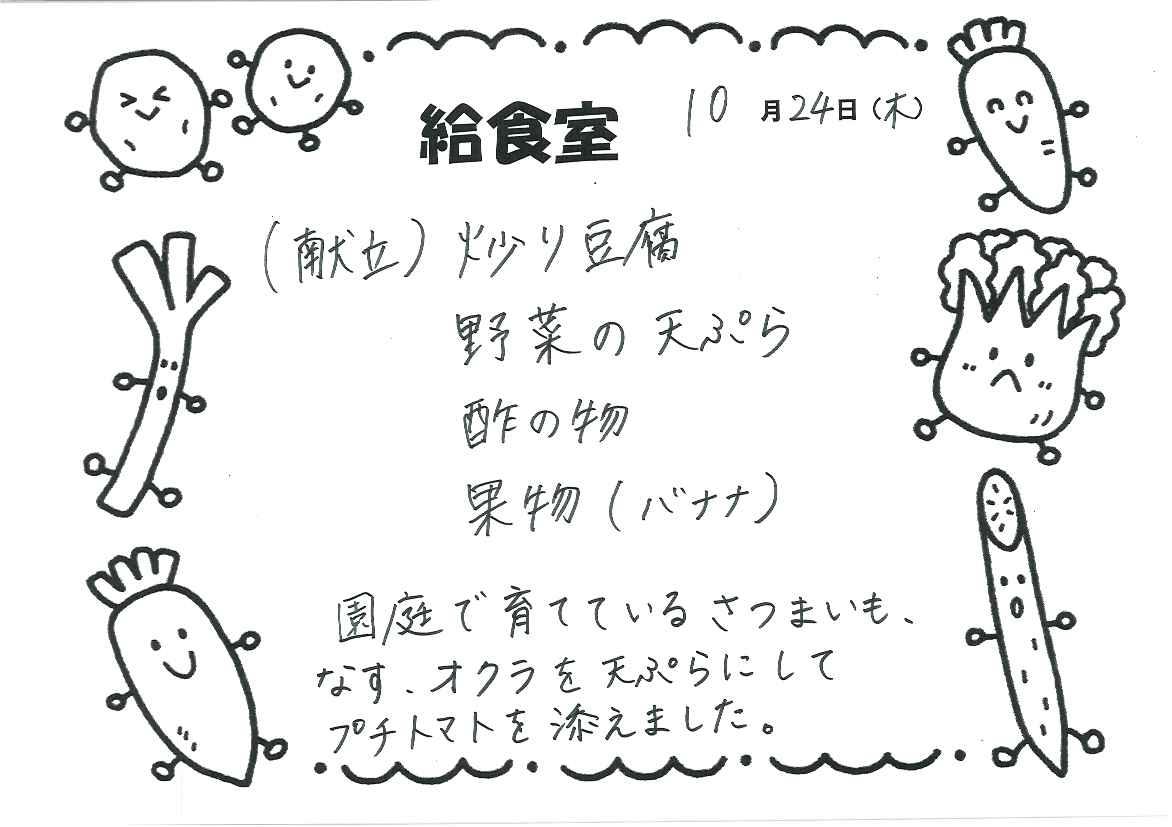 給食室 10月24日(木)
(献立) 炒り豆腐
野菜の天ぷら
酢の物
果物(バナナ)
園庭で育てているさつまいも、
なす、オクラを天ぷらにして
プチトマトを添えました。